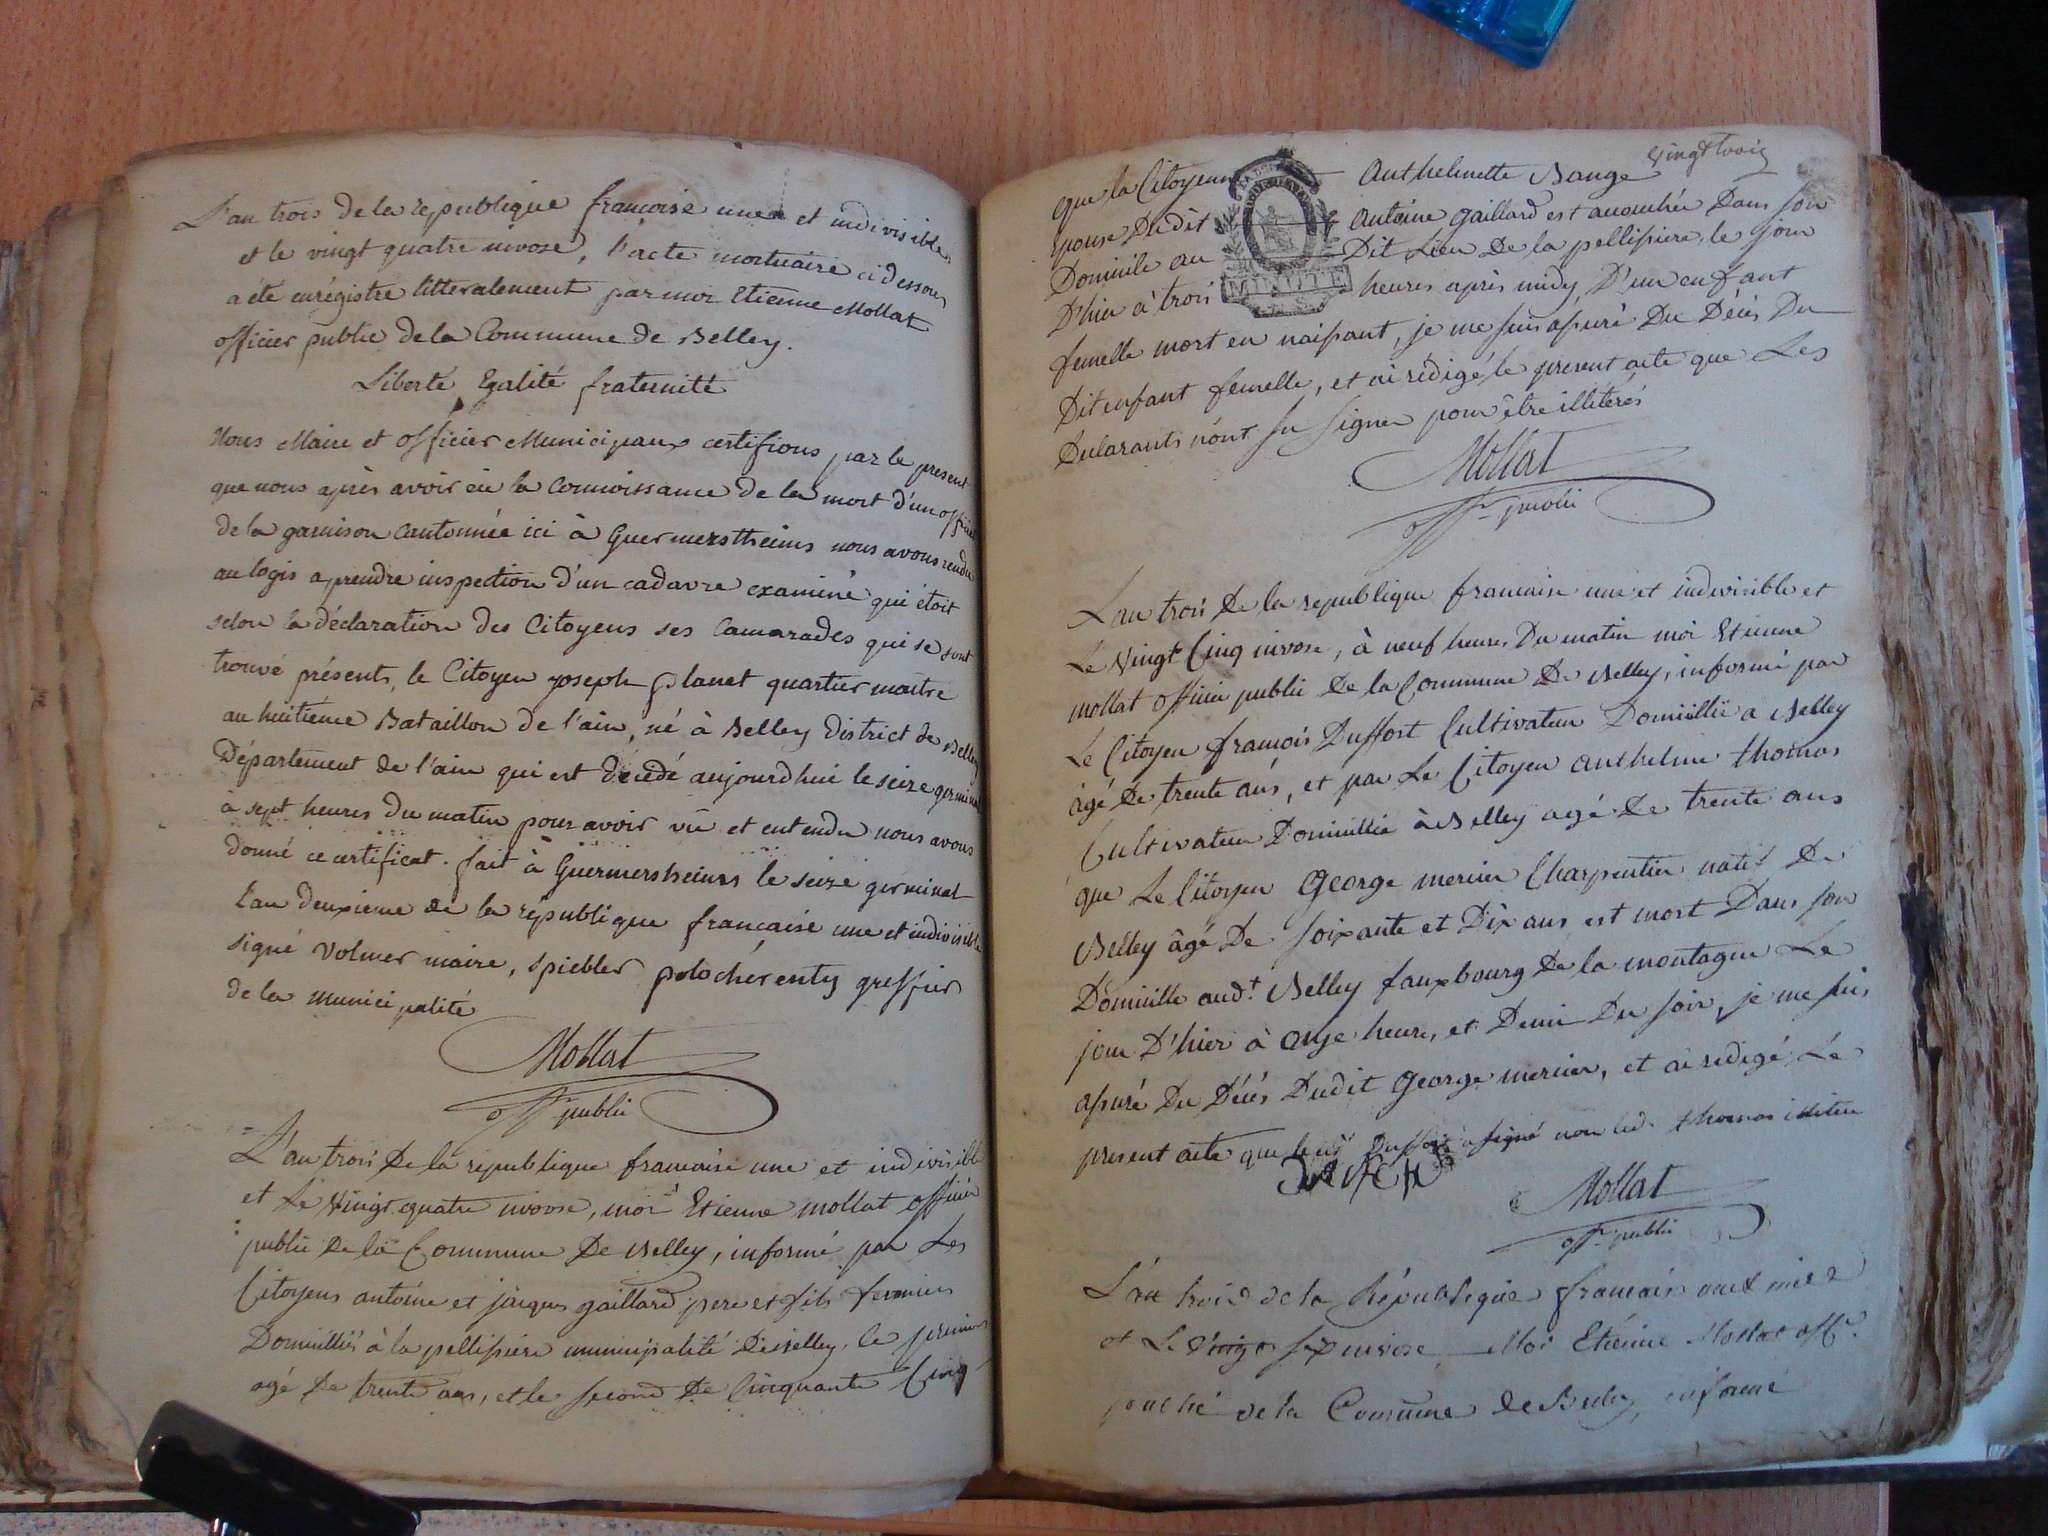 L'an trois de la république françoise une et indivisible
et le vingt quatre nivose, l'acte mortuaire ci dessous
a été enrégistré litteralement par moi Etienne Mollat
officier public de la Commune de Belley.
Liberté, Egalité fraternité
Nous Maire et officier Municipaux certifions par le present
que nous après avoir eu la connoissance de la mort d'un officier
de la garnison cantonnée ici à Guermerstheims nous avons rendu
au logis a prendre inspection d'un cadavre examiné qui étoit
selon la déclaration des Citoyens ses Camarades qui se sont
trouvé présents, le Citoyen yoseph planet quartier maitre
au huitiéme Bataillon de l'ain, né à Belley district de Belley
Département de l'ain qui est décédé aujourdhui le seize germinal
à sept heures du matin pour avoir vû et entendu nous avons
donné ce certificat. fait à Guermersheims le seize germinal
l'an deuxieme de la république française une et indivisible
signé Volmer maire, spiebler greffier
de la municipalité
Mollat
off. public
L'an trois de la république francaise une et indivisible
et Le Vingt quatre nivose, moi Etienne mollat officier
public de la Commune De Belley, informé par Les
Citoyens antoine et jacques gaillard pere et fils fermiers
Domicilliés à la pellisiere municipalité De Belley, le premier
agé De trente ans, et le second De Cinquante Cinq
Vingt trois
que la Citoyenne Anthelmette Bauge
epouse Dudit antoine gaillard est accouchée Dans son
Domicile au Dit Lieu De la pellisiere, le jour
D'hier à trois heures après midy, D'un enfant
MINUTE
femelle mort en naissant, je me suis assuré Du Décès Du
Dit enfant femelle, et ai rédigé le present acte que Les
Declarants n'ont su signer pour être illitérés
Mollat
off. public
L'an trois De la republique francaise une et indivisible et
Le Vingt Cinq nivose, à neuf heures Du matin moi Etienne
mollat officier public De la Commune De Belley, informé par
Le Citoyen françois Duffort Cultivateur Domicillié a Belley
âgé De trente ans, et par Le Citoyen anthelme thomas
Cultivateur Domicillié à Belley agé De trente ans
que Le Citoyen george mercier Charpentier natif De
Belley âgé De soixante et Dix ans est mort Dans son
Domicille aud.t Belley fauxbourg De la montagne Le
jour D'hier à onze heures et Demi Du soir, je me suis
assuré Du Décès Dudit george mercier, et ai redigé Le
present acte que le cit Duffort a signé non led. thomas illiteré
Mollat
off. public
L'an trois de la République francaise une et
et Le Vingt six nivose Moi Etiénne Mollat off.r
public de la Commune de Belley, informé